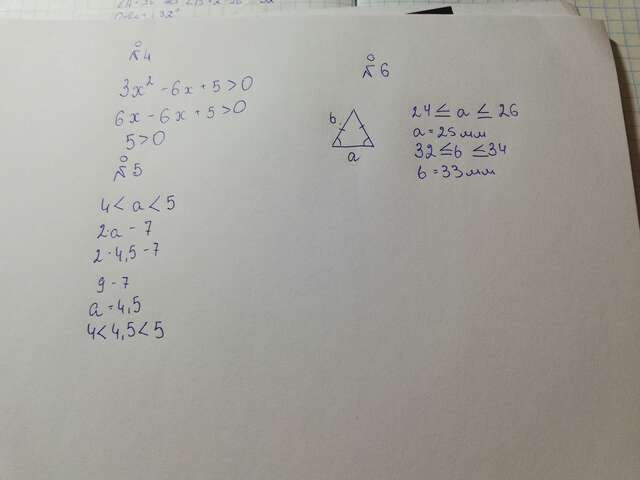 №4
3x² - 6x + 5 > 0
6x - 6x + 5 > 0
5 > 0
№5
4 < a < 5
2·a - 7
2·4,5 - 7
9 - 7
a = 4,5
4 < 4,5 < 5
№6
b
a
24 ≤ a ≤ 26
a = 25 мм
32 ≤ b ≤ 34
b = 33 мм